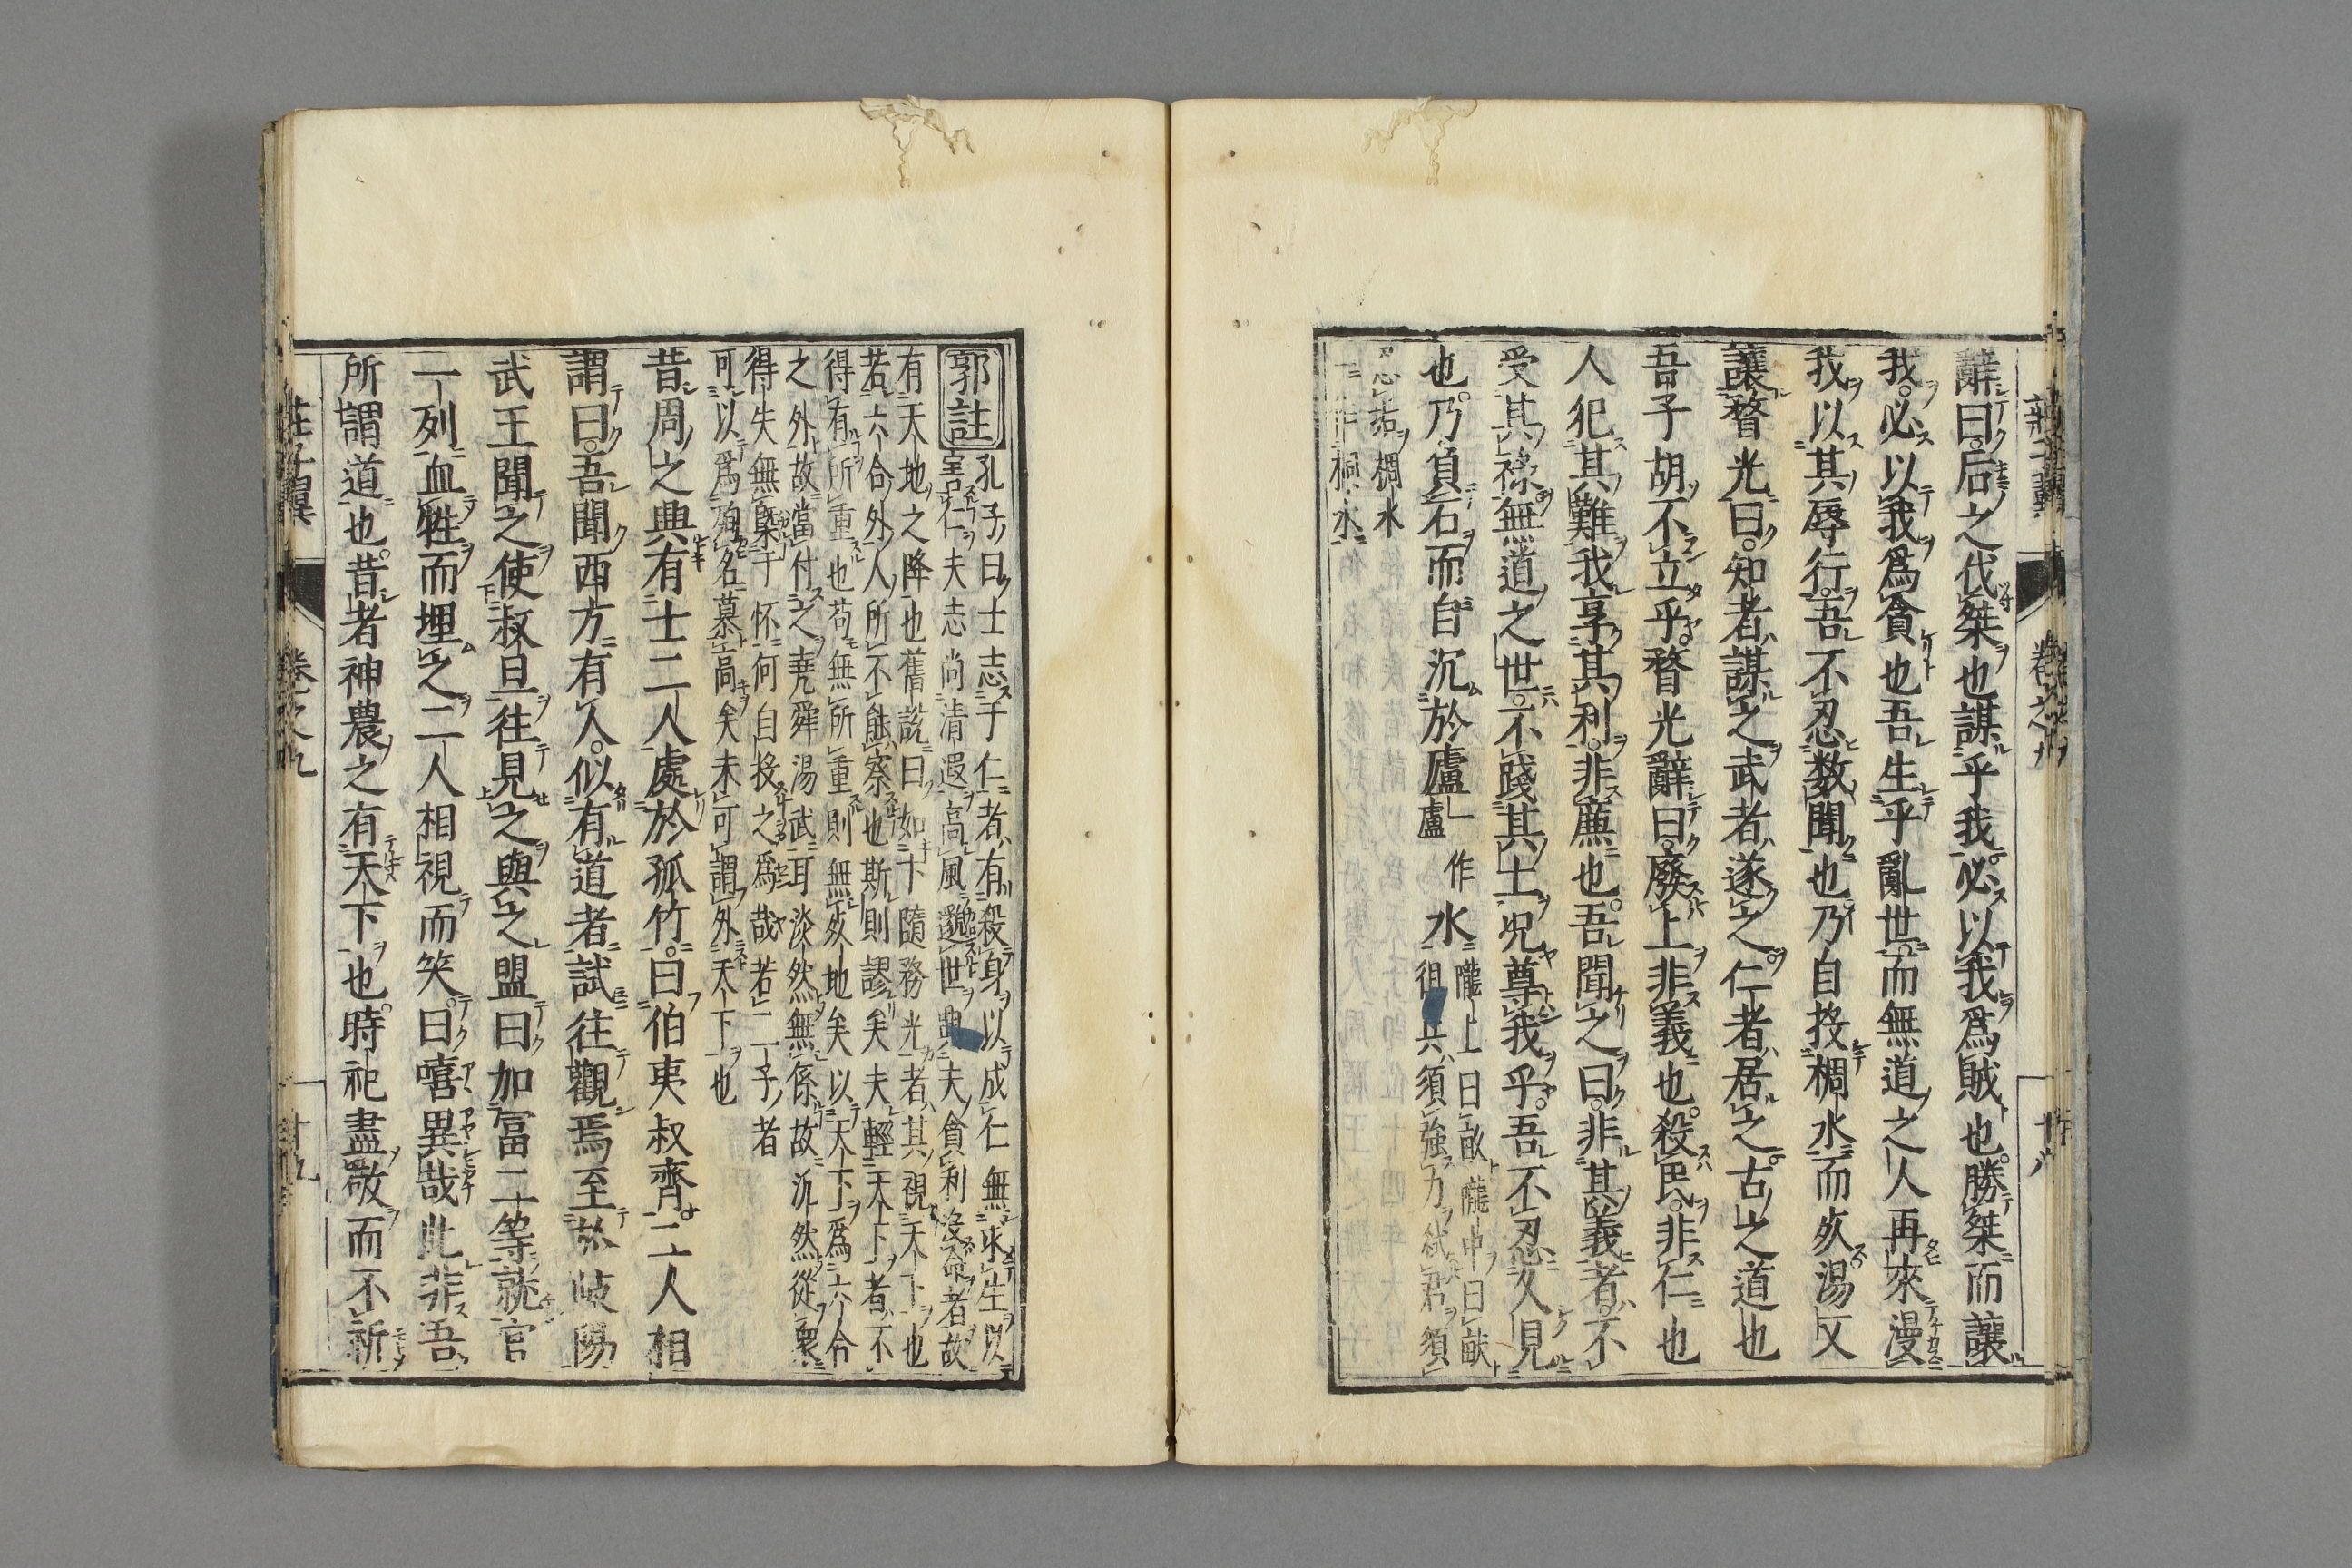 辭曰后之伐桀也謀乎我必以我爲賊也勝桀而讓
我必以我爲貪也吾生乎亂世而無道之人再來漫
我以其辱行吾不忍数聞也乃自投椆水而死湯又
讓瞀光曰知者謀之武者遂之仁者居之古之道也
吾子胡不立乎瞀光辭曰廢上非義也殺民非仁也
人犯其難我享其利非廉也吾聞之曰非其義者不
受其祿無道之世不踐其土况尊我乎吾不忍久見
也乃負石而自沉於廬
一作
廬
水
隴上曰畝隴中曰畎
兵須強力弑君須
忍垢椆水
一作桐水
莊子翼 卷之九 十八
郭註
孔子曰士志于仁者有殺身以成仁無求生以
害仁夫志尚清遐高風邈世與夫貪利沒命者故
有天地之降也舊說曰如卞隨務光者其視天下也
若六合外人所不能察也斯則謬矣夫輕天下者不
得有所重也苟無所重則無死地矣以天下爲六合
之外故當付之堯舜湯武耳淡然無係故汎然從衆
得失無槩于怀何自投之爲哉若二子者
可以爲殉名慕高矣未可謂外天下也
昔周之興有士二人處於孤竹曰伯夷叔齊二人相
謂曰吾聞西方有人似有道者試往觀焉至於岐陽
武王聞之使叔旦往見之與之盟曰加富二等就官
一列血牲而埋之二人相視而笑曰嘻異哉此非吾
所謂道也昔者神農之有天下也時祀盡敬而不祈
莊子翼 卷之九 十九